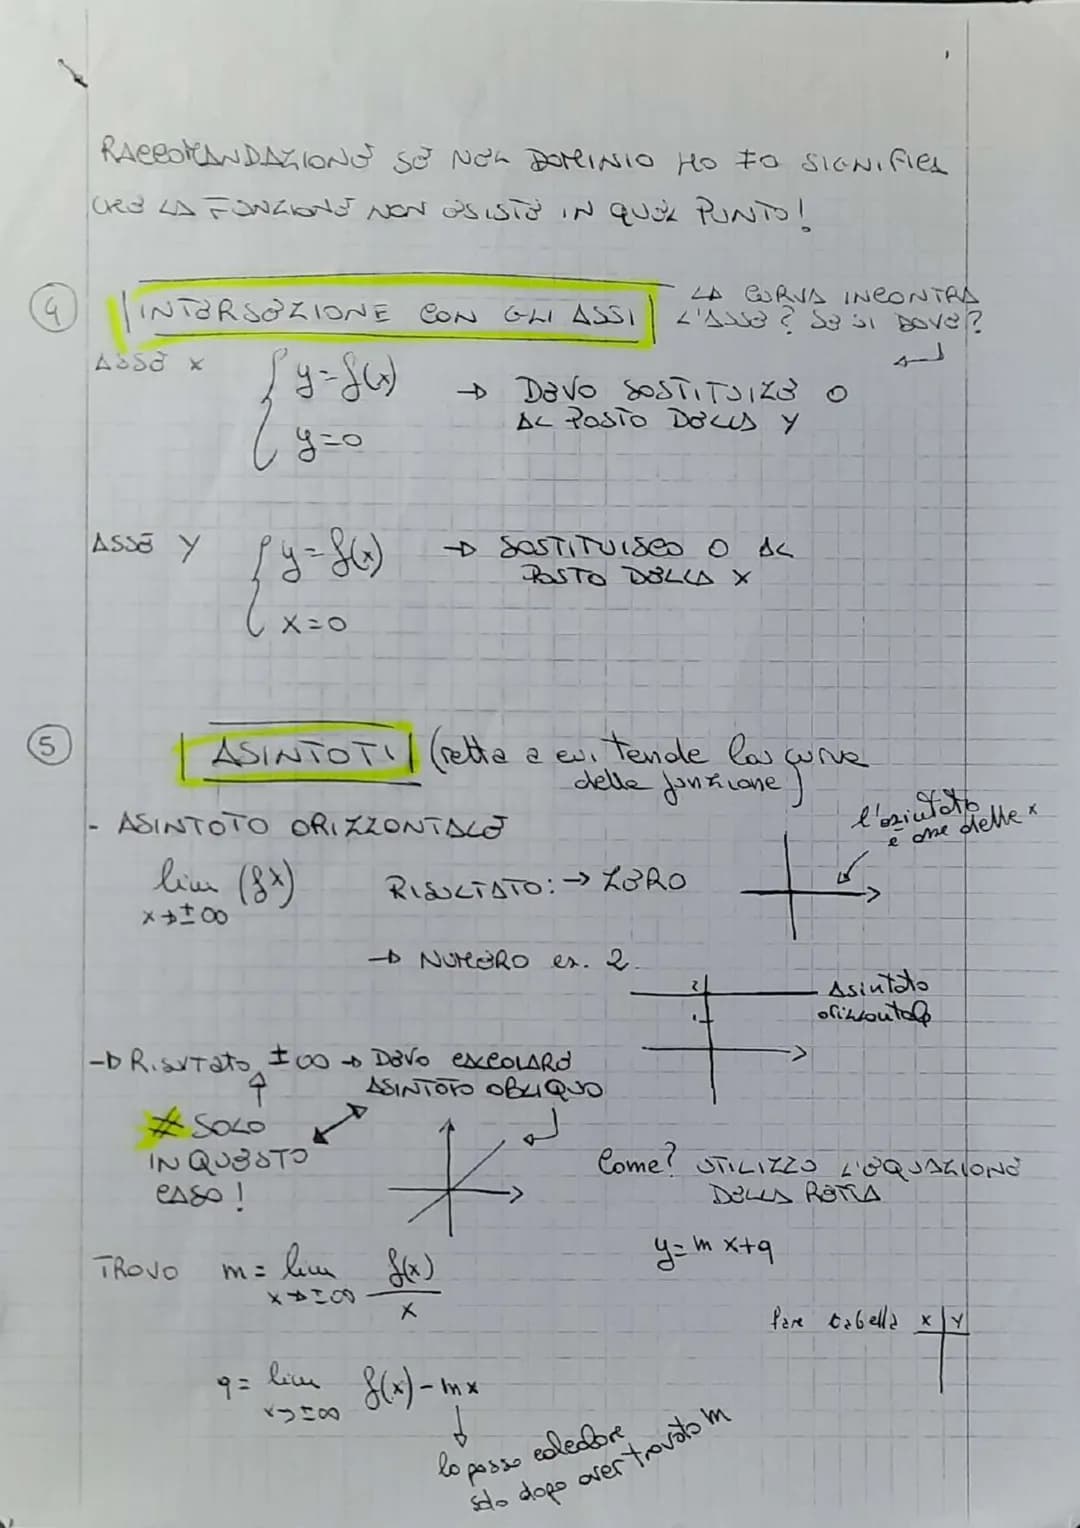 RACCOMANDAZIONE SE NEL DOMINIO HO ≠0 SIGNIFICA
CHE LA FUNZIONE NON ESISTE IN QUEL PUNTO!
4 INTERSEZIONE CON GLI ASSI LA CURVA INCONTRA
L'ASSE? SE SI DOVE?
ASSE x { y=f(x) → DEVO SOSTITUIRE 0
AL POSTO DELLA Y
y=0
ASSE Y { y=f(x) → SOSTITUISCO 0 AL
POSTO DELLA X
x=0
5 ASINTOTI (retta a cui tende la curva
della funzione)
- ASINTOTO ORIZZONTALE
l'asintoto
è asse delle x
lim (fx) RISULTATO: → ZERO
x→±∞
→ NUMERO es. 2
2 Asintoto
orizzontale
1
→ Risultato ±∞ → DEVO CALCOLARE
ASINTOTO OBLIQUO
* SOLO
IN QUESTO
CASO!
Come? UTILIZZO L'EQUAZIONE
DELLA RETTA
y=mx+q
TROVO m= lim f(x)
x→±∞ x
fare tabella x | y
q= lim f(x)-mx
x→±∞
lo posso calcolare
solo dopo aver trovato m